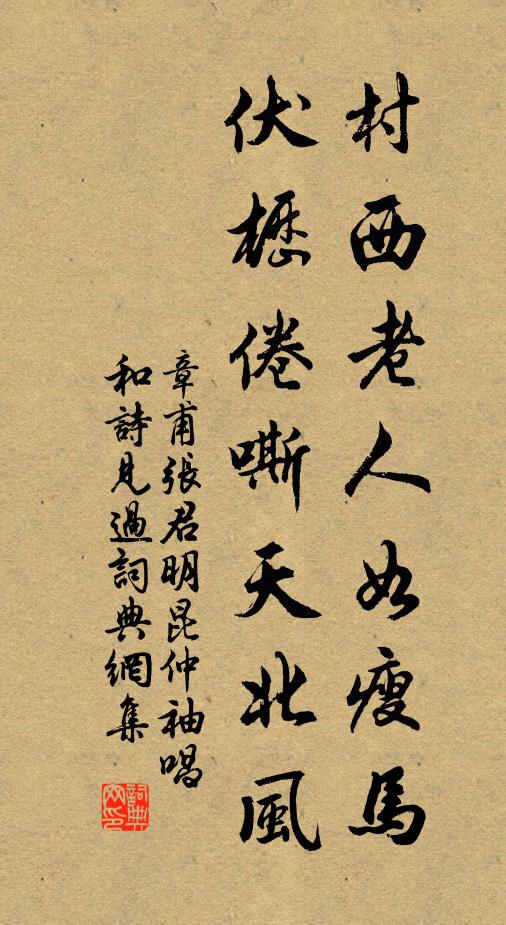 村西老人如瘦馬
伏櫪倦嘶天北風
章甫張君明昆仲袖唱
和詩見過詞典網集
詞典網印